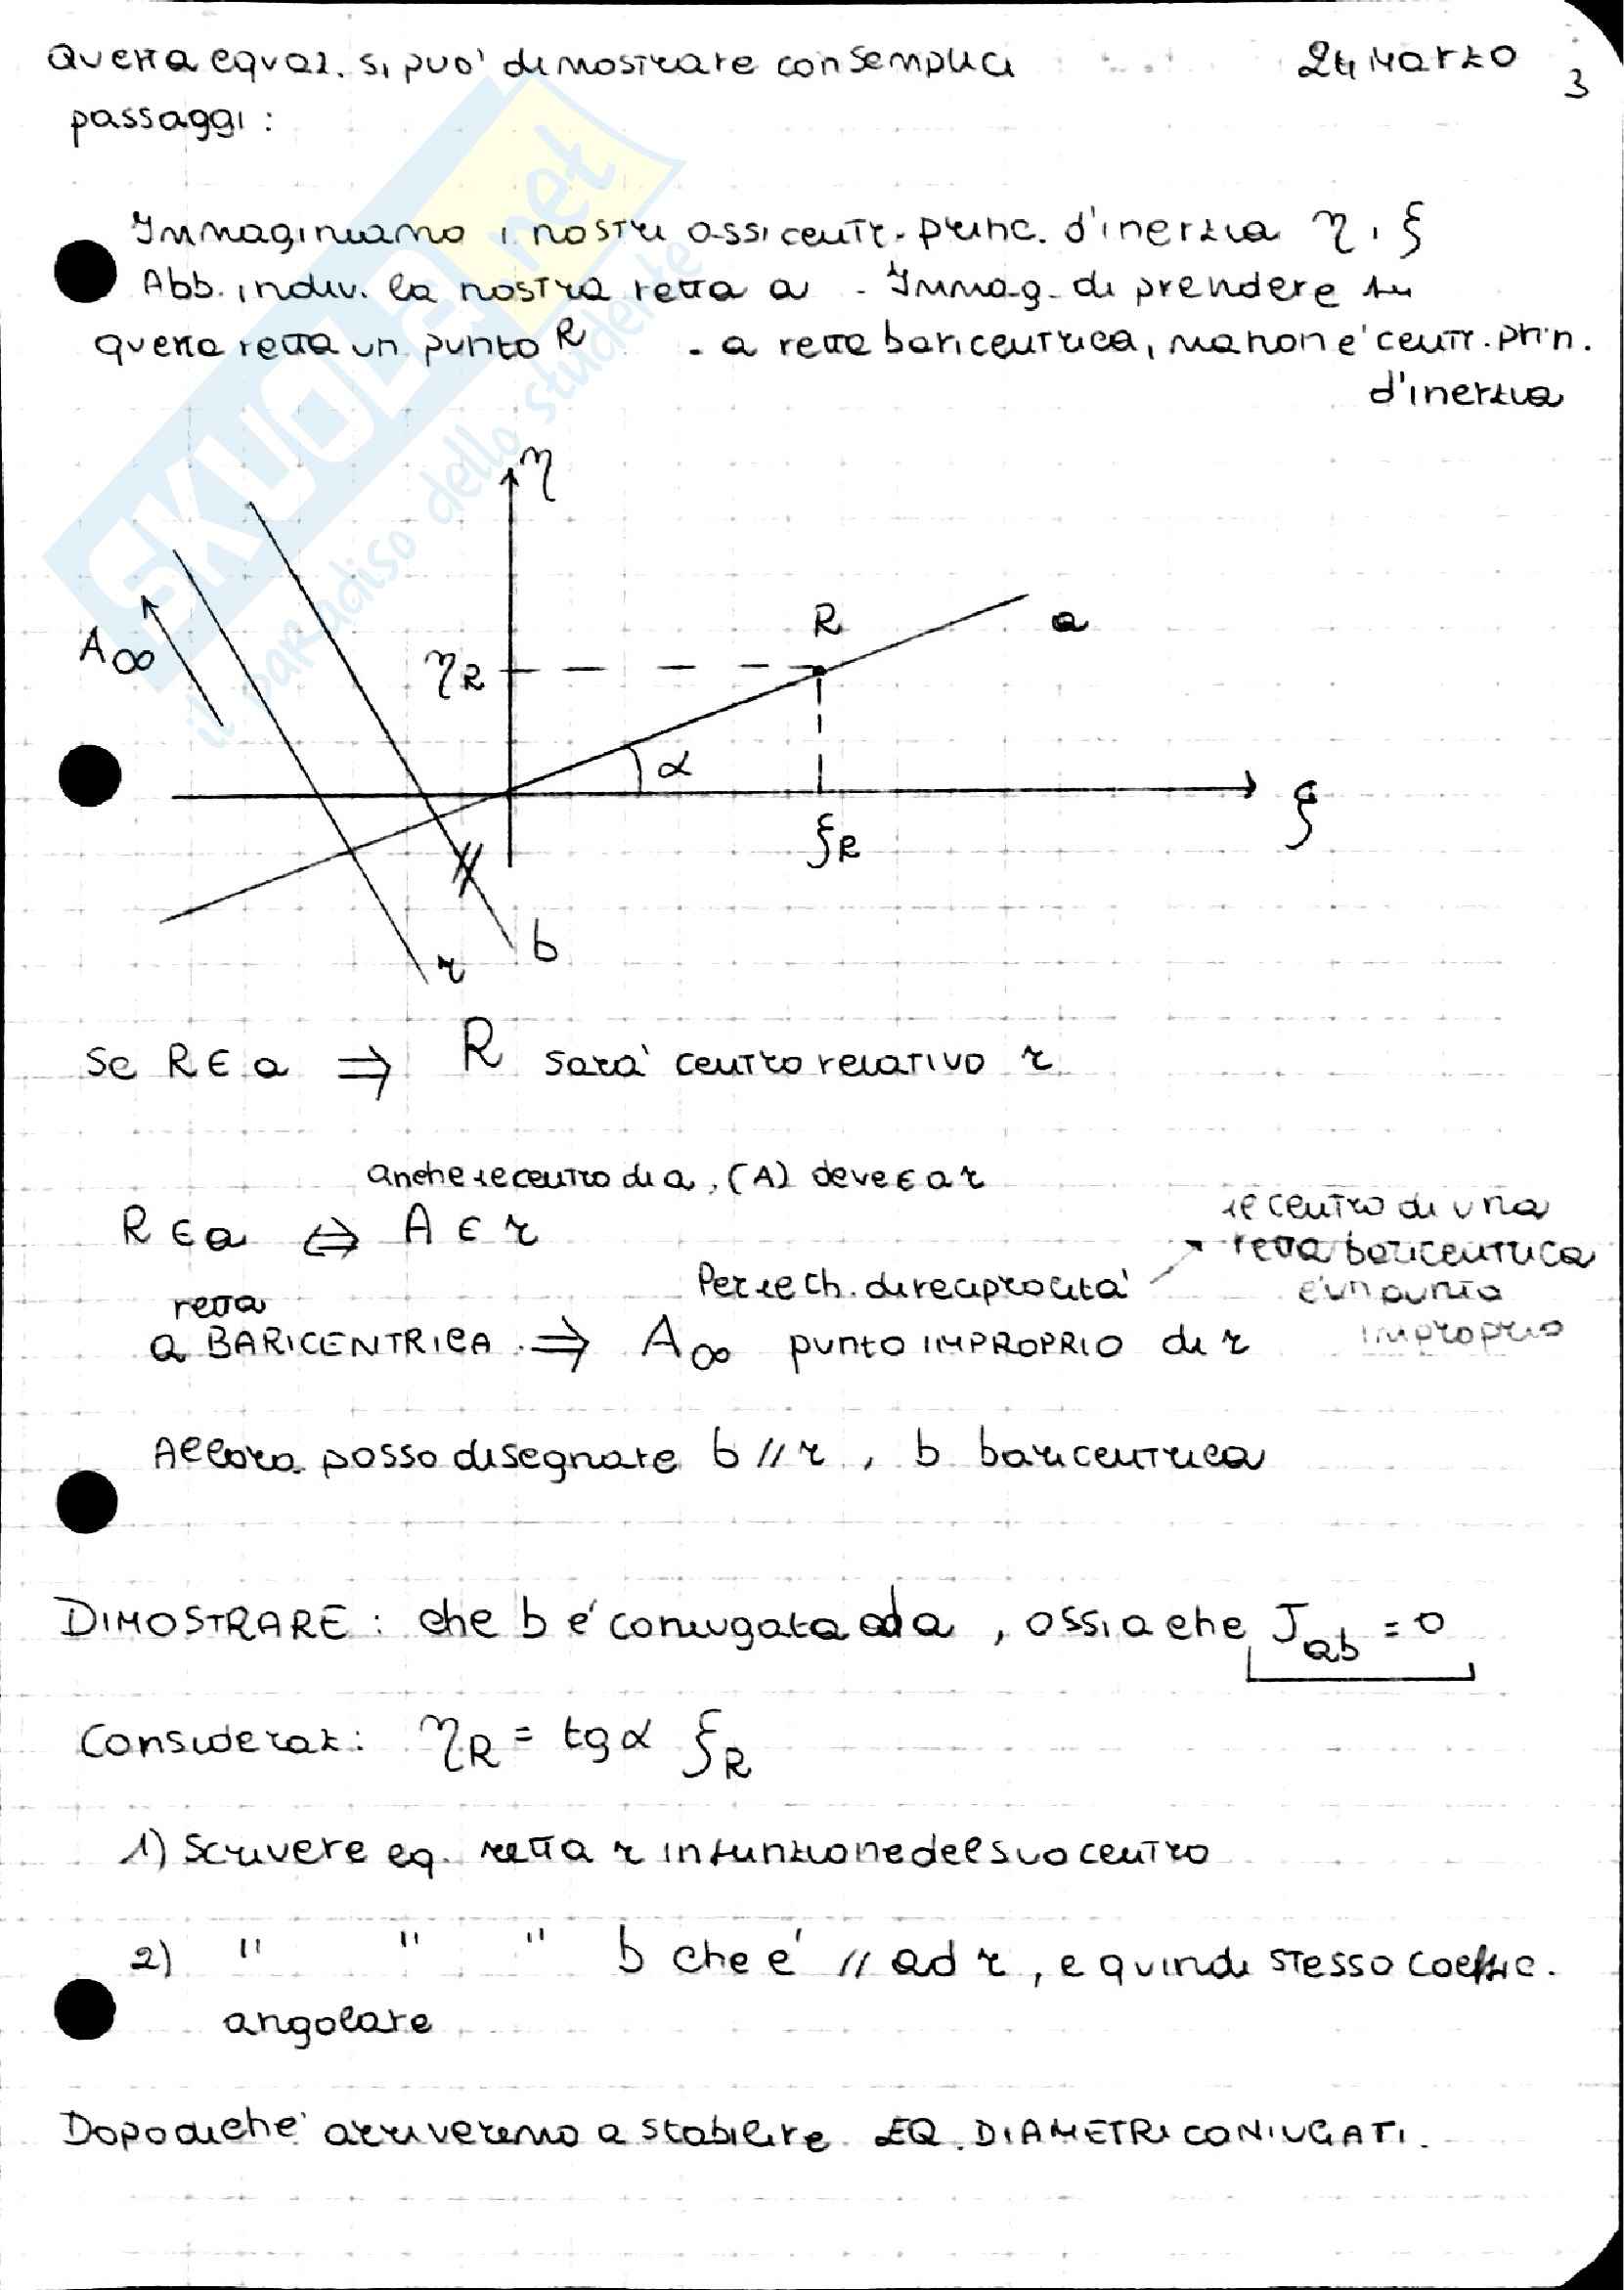 Questa equaz. si può dimostrare con semplici
24 Marzo
3
passaggi:
Immaginiamo i nostri assi centr. princ. d'inerzia η, ξ
Abb. indiv. la nostra retta a . Immag. di prendere su
questa retta un punto R . a retta baricentrica, ma non è centr. prin.
d'inerzia
SKUOLA.net
il paradiso dello studente
η
A∞
ηR
R
a
α
ξ
ξR
b
r
Se R ∈ a ⇒ R sarà centro relativo r
anche il centro di a, (A) deve ∈ a r
R ∈ a ⇔ A ∈ r
il centro di una
retta baricentrica
è un punto
improprio
Per il th. di reciprocità
retta
a BARICENTRICA ⇒ A∞ punto IMPROPRIO di r
Allora posso disegnare b // r , b baricentrica
DIMOSTRARE : che b è coniugata ad a , ossia che Jab = 0
Consideraz: ηR = tg α ξR
1) Scrivere eq. retta r in funzione del suo centro
2) " " " b che è // ad r , e quindi stesso coeffic.
angolare
Dopodiché arriveremo a stabilire EQ. DIAMETRI CONIUGATI.